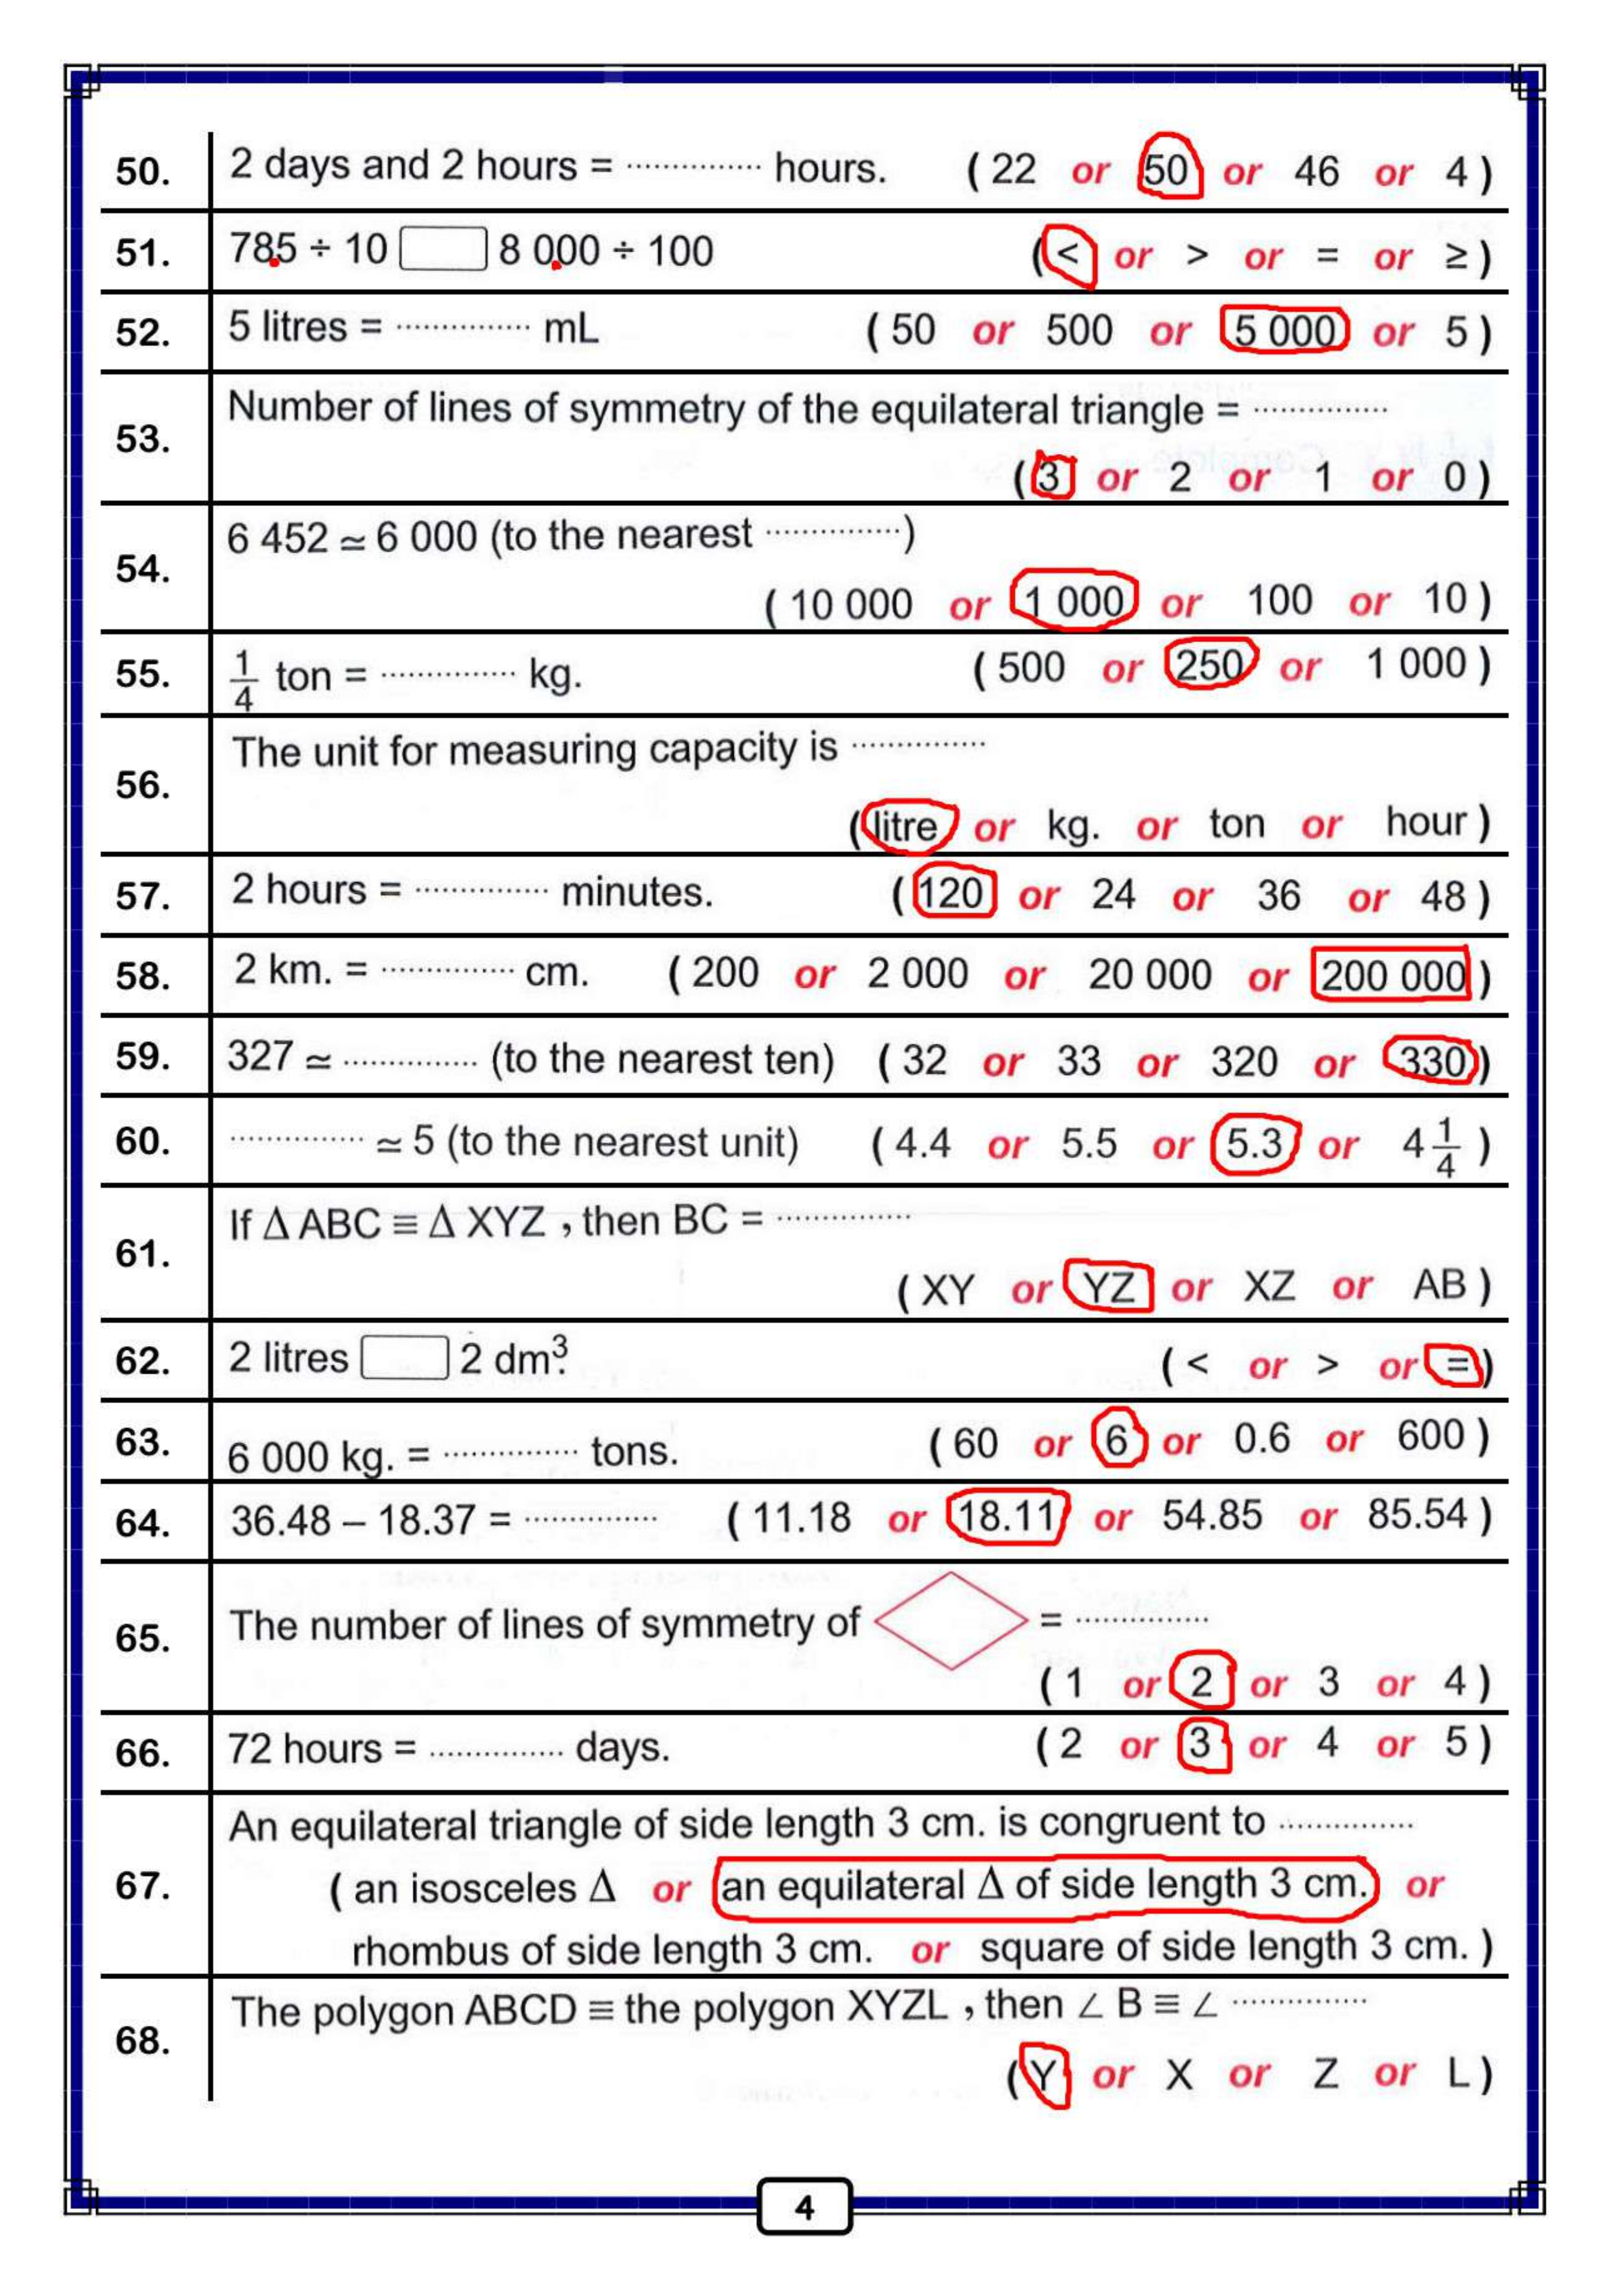 50. 2 days and 2 hours = ............... hours. ( 22 or 50 or 46 or 4 )
51. 785 ÷ 10 8 000 ÷ 100 ( < or > or = or ≥ )
52. 5 litres = ............... mL ( 50 or 500 or 5 000 or 5 )
53. Number of lines of symmetry of the equilateral triangle = ...............
( 3 or 2 or 1 or 0 )
54. 6 452 ≃ 6 000 (to the nearest ...............)
( 10 000 or 1 000 or 100 or 10 )
55. 1/4 ton = ............... kg. ( 500 or 250 or 1 000 )
56. The unit for measuring capacity is ...............
( litre or kg. or ton or hour )
57. 2 hours = ............... minutes. ( 120 or 24 or 36 or 48 )
58. 2 km. = ............... cm. ( 200 or 2 000 or 20 000 or 200 000 )
59. 327 ≃ ............... (to the nearest ten) ( 32 or 33 or 320 or 330 )
60. ............... ≃ 5 (to the nearest unit) ( 4.4 or 5.5 or 5.3 or 4 1/4 )
61. If Δ ABC ≡ Δ XYZ , then BC = ...............
( XY or YZ or XZ or AB )
62. 2 litres 2 dm³. ( < or > or = )
63. 6 000 kg. = ............... tons. ( 60 or 6 or 0.6 or 600 )
64. 36.48 – 18.37 = ............... ( 11.18 or 18.11 or 54.85 or 85.54 )
65. The number of lines of symmetry of = ...............
( 1 or 2 or 3 or 4 )
66. 72 hours = ............... days. ( 2 or 3 or 4 or 5 )
67. An equilateral triangle of side length 3 cm. is congruent to ...............
( an isosceles Δ or an equilateral Δ of side length 3 cm. or
rhombus of side length 3 cm. or square of side length 3 cm. )
68. The polygon ABCD ≡ the polygon XYZL , then ∠ B ≡ ∠ ...............
( Y or X or Z or L )
4